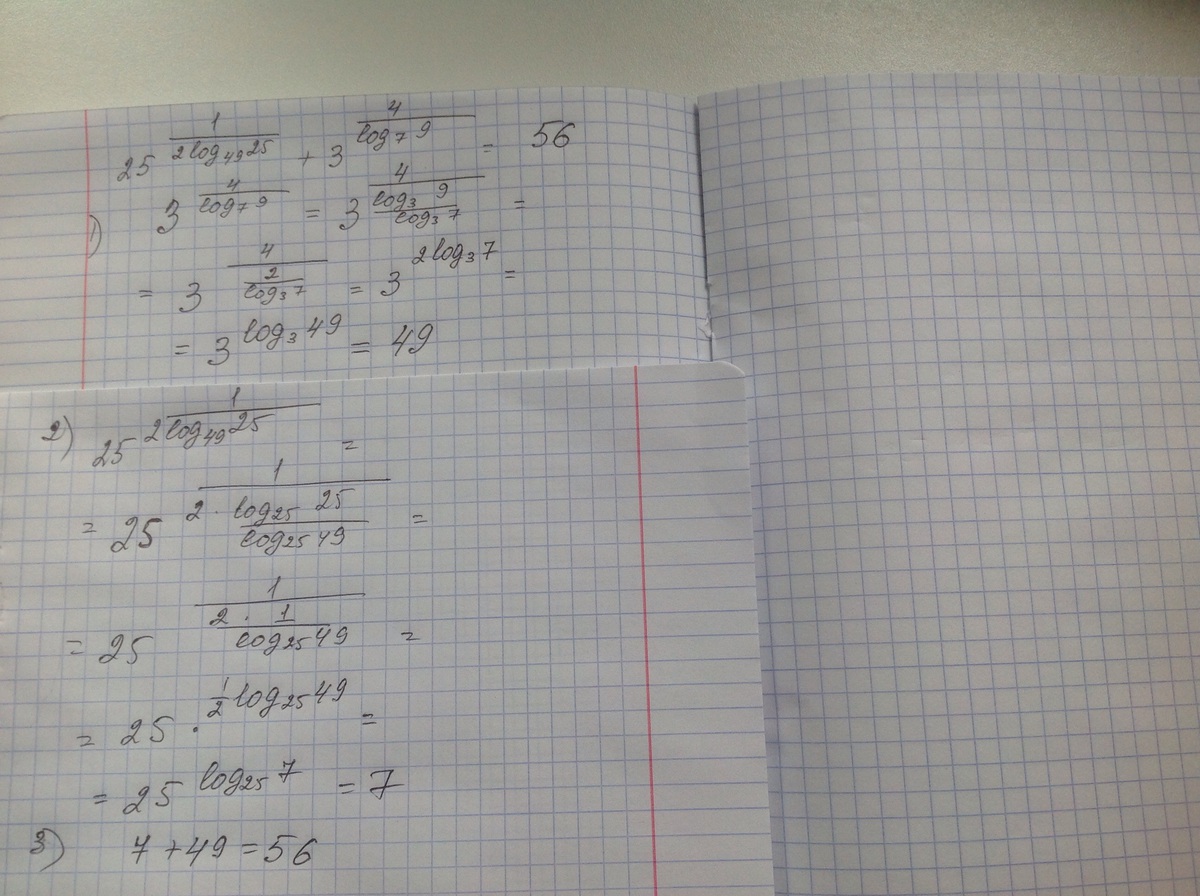 25^(1/(2log₄₉25)) + 3^(4/(log₇9)) = 56
1) 3^(4/(log₇9)) = 3^(4/((log₃9)/(log₃7))) =
= 3^(4/(2/(log₃7))) = 3^(2log₃7) =
= 3^(log₃49) = 49
2) 25^(1/(2log₄₉25)) =
= 25^(1/(2·(log₂₅25)/(log₂₅49))) =
= 25^(1/(2·1/(log₂₅49))) =
= 25·^(1/2 log₂₅49) =
= 25^(log₂₅7) = 7
3) 7+49=56